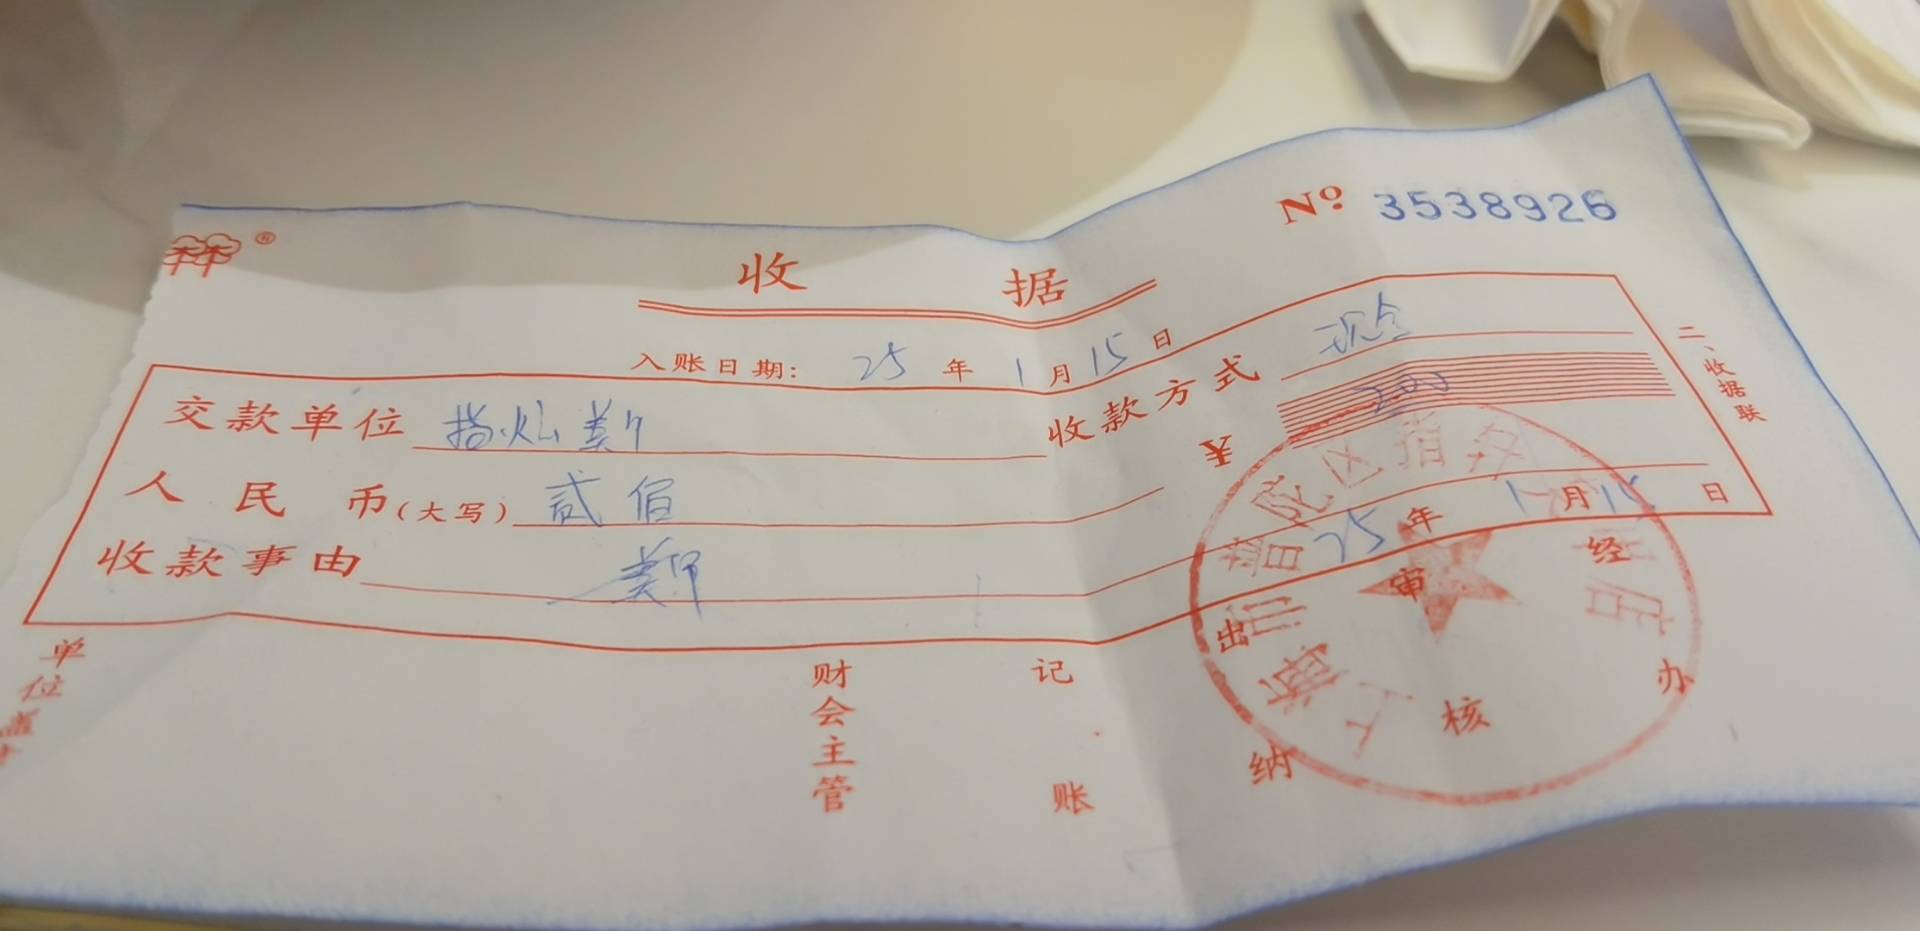 № 3538926
收 据
入账日期： 25 年 1 月 15 日
交款单位 指灿美甲 收款方式 现金
人 民 币（大写） 贰佰 ￥ 200
收款事由 美甲 25 年 1 月 15 日
二、收据联
单位盖
财会主管
记账
出纳
审核
经办